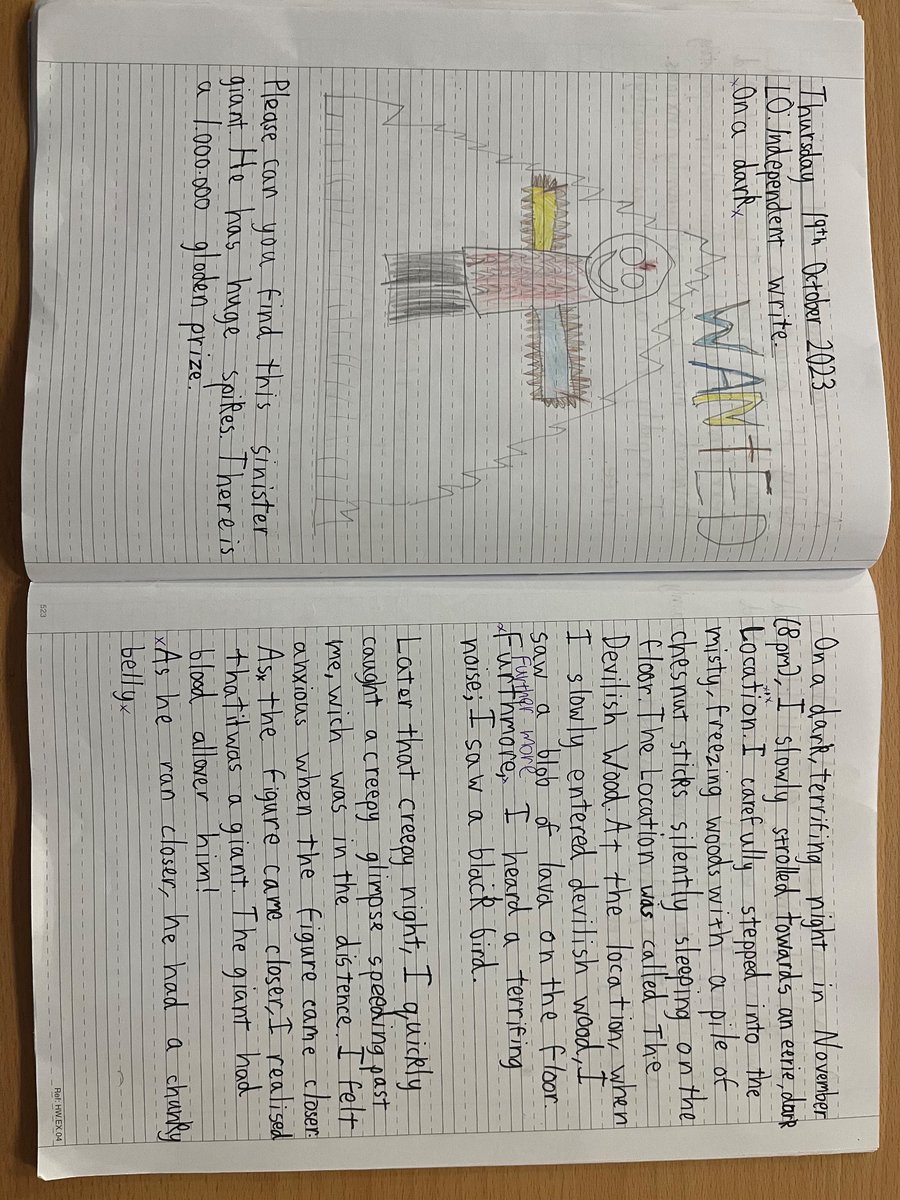 Thursday 19th October 2023
LO. Independent write.
xOn a darkx
WANTED
Please can you find this sinister
giant He has huge spikes. There is
a 1,000.000 gloden prize.
On a dark, terrifing night in November
(8pm), I slowly strolled towards an eerie, dark
Location. I carefully stepped into the
misty, freezing woods with a pile of
chesnut sticks silently sleeping on the
floor. The Location was called The
Devilish Wood. At the location, when
I slowly entered devilish wood, I
saw a blob of lava on the floor.
Further more
xFurthmore,x I heard a terrifing
noise; I saw a black bird.
Later that creepy night, I quickly
caught a creepy glimpse speeding past
me, wich was in the distence. I felt
anxious when the figure came closer.
Asx the figure came closer, I realised
that it was a giant. The giant had
blood allover him!
xAs he ran closer, he had a chanky
bellyx
523
Ref: HW.EX.04